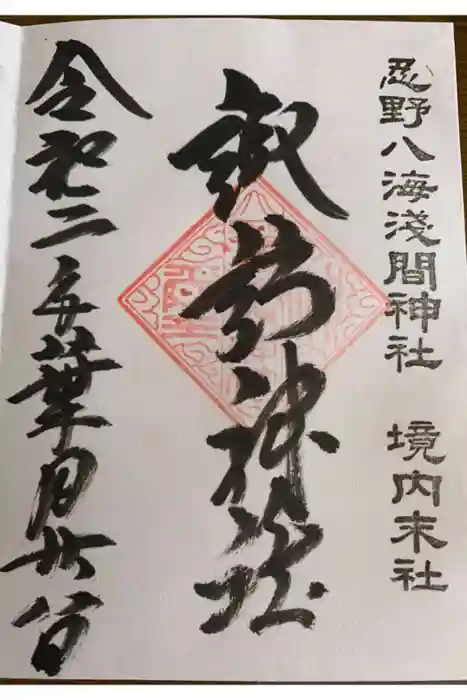 忍野八海淺間神社 境内末社
神社
令和二年葉月廿八日